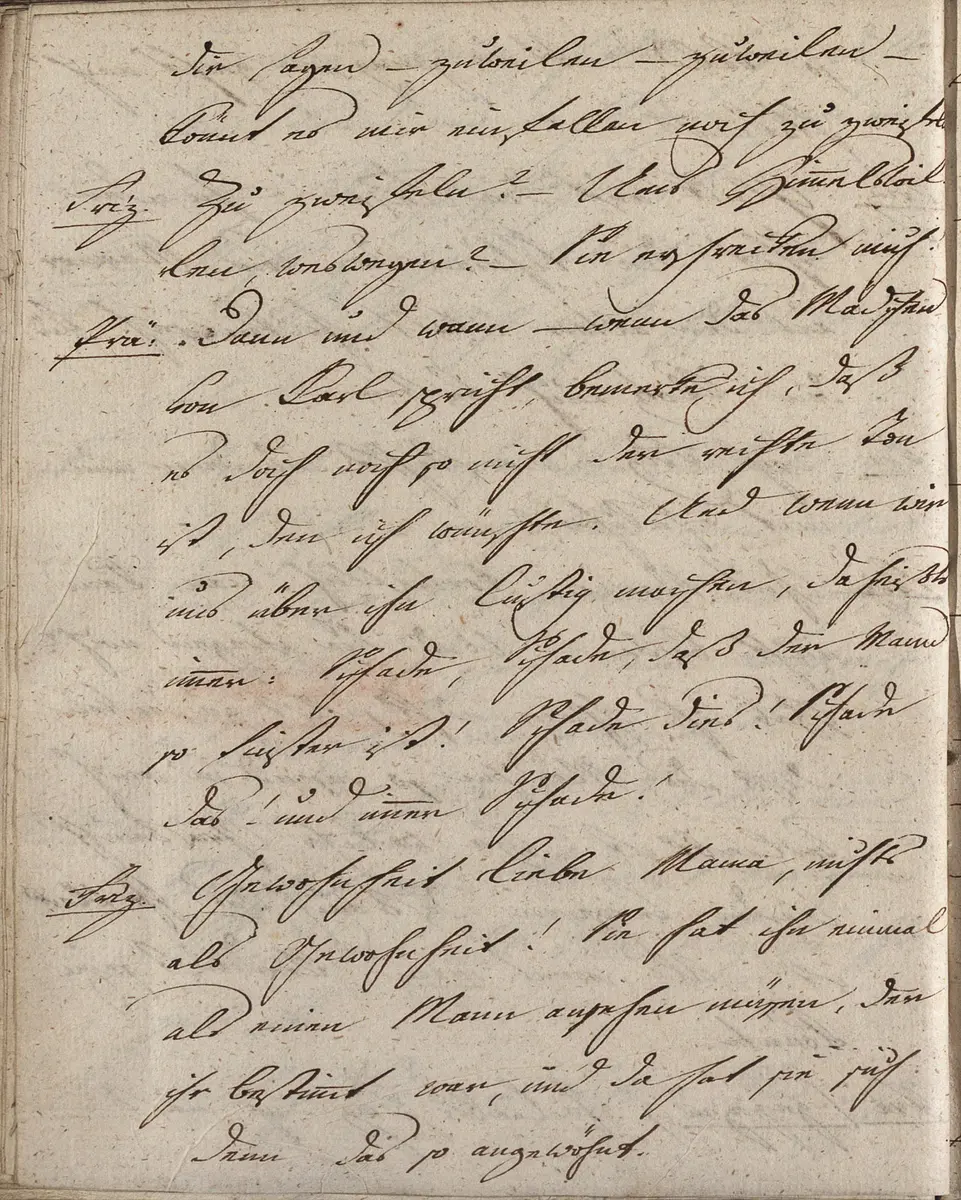 dir sagen – zuweilen – zuweilen –
könnt es mir einfallen noch zu zweifeln
Friz. Zu zweifeln? – Ums Himmelswil-
len, weswegen? – Sie erschrecken mich!
Prä: Dann und wann – wenn das Mädchen
von Karl spricht, bemerke ich, daß
es doch noch so nicht der rechte Ton
ist, den ich wünschte. Und wenn wir
uns über ihn lustig machen, da heißts
immer: Schade, Schade, daß der Mann
so finster ist! Schade dies! Schade
das! und immer Schade!
Friz. Gewohnheit liebe Mama, nichts
als Gewohnheit! Sie hat ihn einmal
als einen Mann ansehen müssen, der
ihr bestimmt war, und da hat sie sich
denn das so angewöhnt.